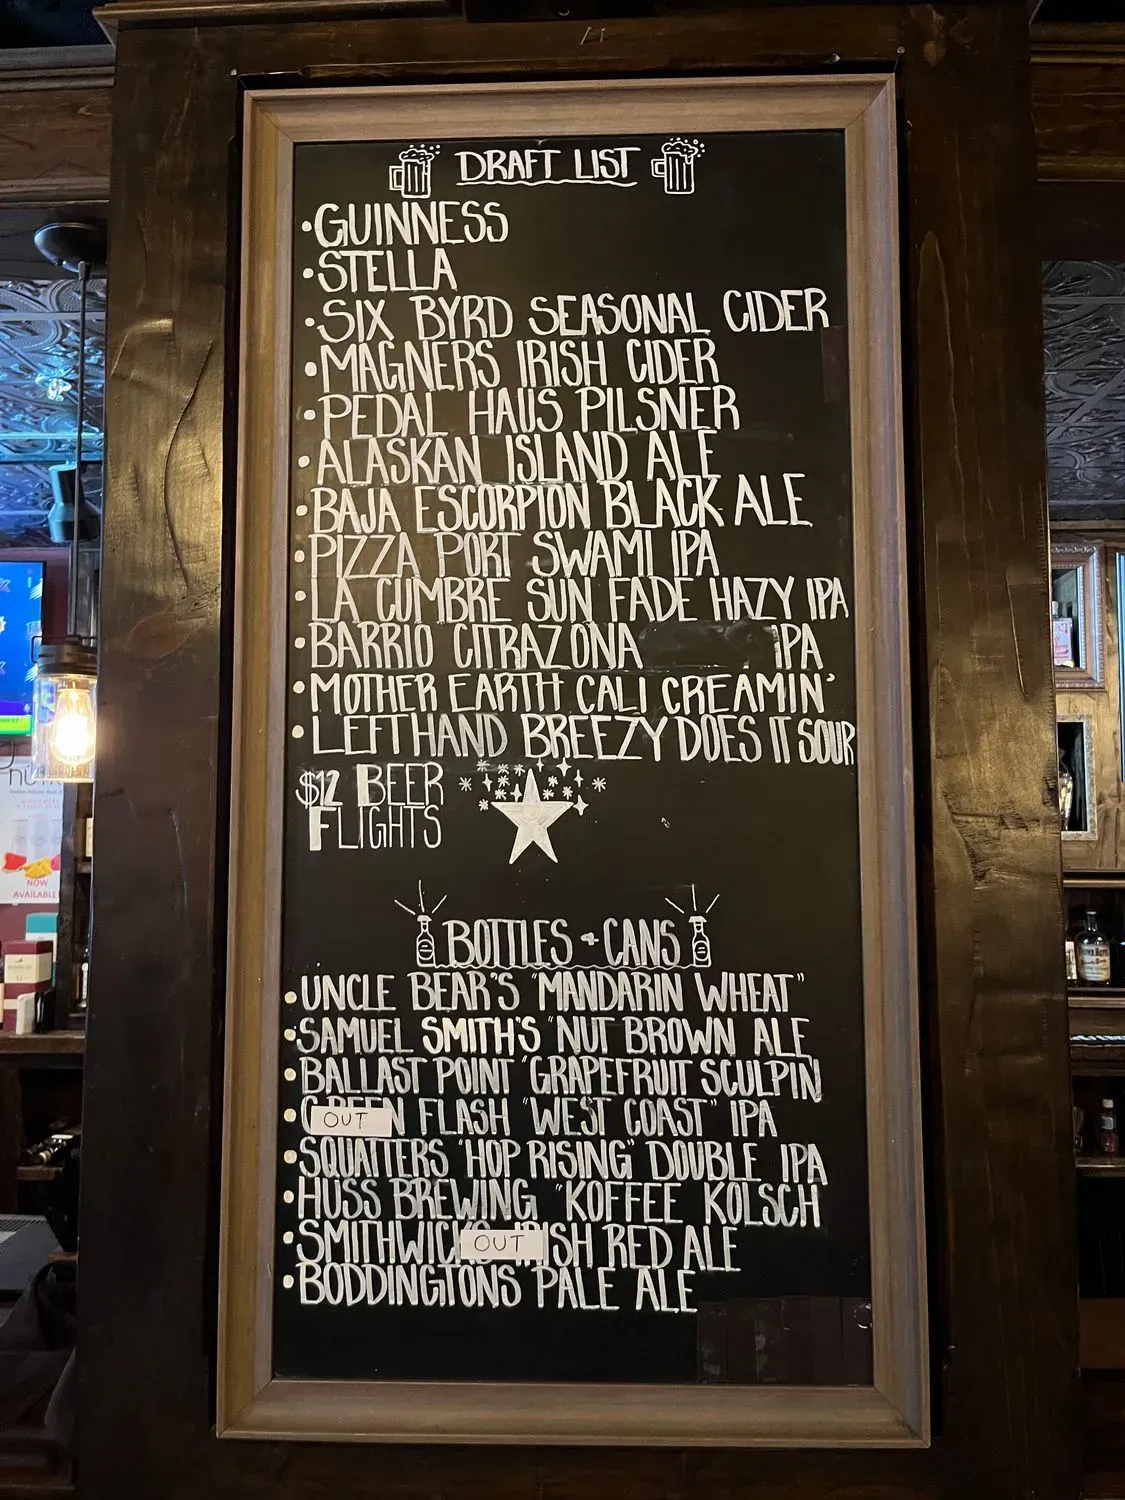 DRAFT LIST
•GUINNESS
•STELLA
•SIX BYRD SEASONAL CIDER
•MAGNERS IRISH CIDER
•PEDAL HAUS PILSNER
•ALASKAN ISLAND ALE
•BAJA ESCORPION BLACK ALE
•PIZZA PORT SWAMI IPA
•LA CUMBRE SUN FADE HAZY IPA
•BARRIO CITRAZONA IPA
•MOTHER EARTH CALI CREAMIN'
•LEFTHAND BREEZY DOES IT SOUR
$12 BEER
FLIGHTS
BOTTLES + CANS
•UNCLE BEAR'S "MANDARIN WHEAT"
•SAMUEL SMITH'S "NUT BROWN ALE
•BALLAST POINT "GRAPEFRUIT SCULPIN
•GREEN FLASH "WEST COAST" IPA
OUT
•SQUATTERS "HOP RISING" DOUBLE IPA
•HUSS BREWING "KOFFEE KOLSCH
•SMITHWICKS IRISH RED ALE
OUT
•BODDINGTONS PALE ALE
NOW
AVAILABLE